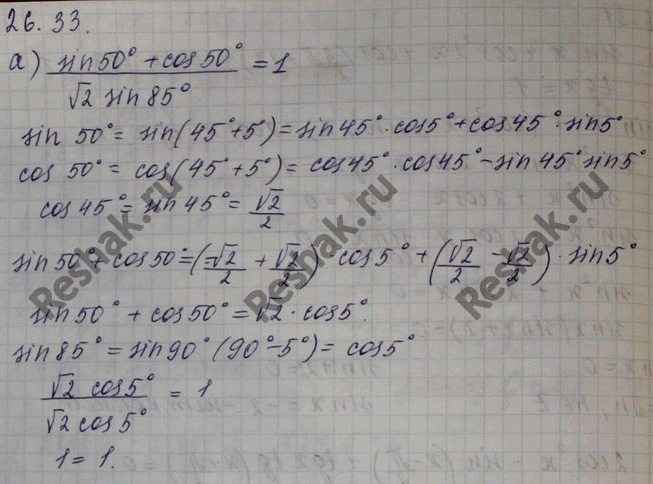 26.33.
а) (sin50° + cos50°)/(√2 sin85°) = 1
sin 50° = sin(45°+5°) = sin45°·cos5° + cos45°·sin5°
cos 50° = cos(45°+5°) = cos45°·cos45° - sin45° sin5°
cos45° = sin45° = √2/2
sin50° + cos50° = (√2/2 + √2/2)·cos5° + (√2/2 - √2/2)·sin5°
sin50° + cos50° = √2·cos5°.
sin85° = sin90°(90°-5°) = cos5°
(√2 cos5°)/(√2 cos5°) = 1
1 = 1.
Reshak.ru
Reshak.ru
Reshak.ru